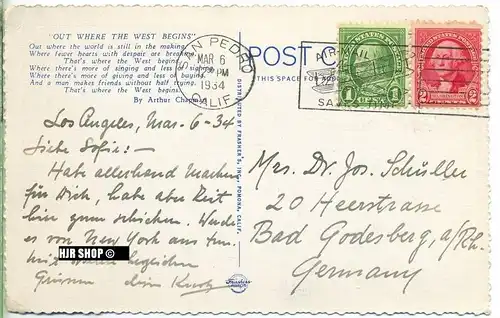 "OUT WHERE THE WEST BEGINS"
Out where the world is still in the making,
Where fewer hearts with despair are breaking,
That's where the West begins.
Where there's more of singing and less of sighing,
Where there's more of giving and less of buying,
And a man makes friends without half trying—
That's where the West begins.
By Arthur Chapman
SAN PEDRO
MAR 6
PM
1934
CALIF.
POST C
THIS SPACE FOR ADD
AIR MAIL
SAVES TIME
UNITED STATES
1 1
2 2
DISTRIBUTED BY FRASHER'S, INC., POMONA, CALIF.
Los Angeles, Mar-6-34
Liebe Sofie:-
Habe allerhand Marken
für Dich, habe aber Zeit
hin zum schicken. Werde
es von New York aus tun.
Mit herzlichen
Grüssen Dein Kurt
Mrs. Dr. Jos. Schüller
20 Heerstrasse
Bad Godesberg, a/Rh.
Germany
HJR SHOP ©
Frashers